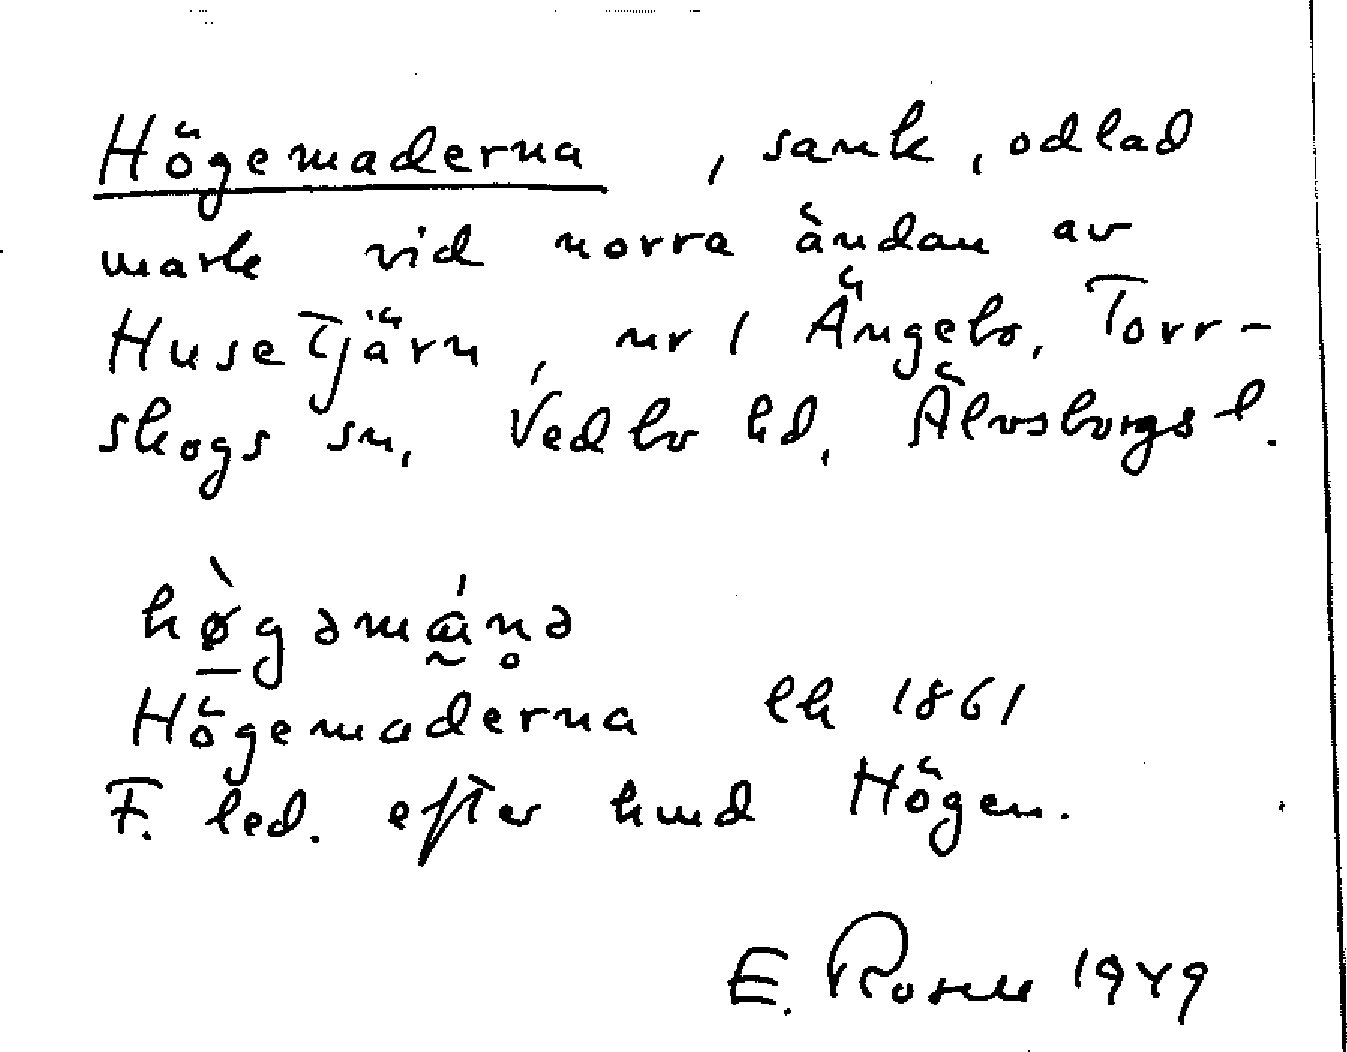 Högemaderna, sank, odlad
mark vid norra ändan av
Husetjärn, nr 1 Ängebo, Torr-
skogs sn, Vedbo hd, Älvsborgs l.
hø̀gəmán̥ə
Högemaderna lk 1861
F. led. efter hmd Högen.
E. Rosell 1949